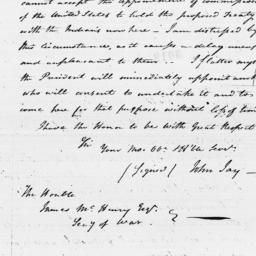 cannot accept the appointment of commissioner
of the United States to hold the proposed Treaty
with the Indians now here – I am distressed by
this circumstance, as it causes a delay
and unpleasant to them I flatter mys
the President will immediately appoint
who will consent to undertake it and to
come here for that purpose without loss of time
I have the Honor to be with Great Respect
Sir
Your Mo. Obt. Hble Serv.
(Signed) John Jay –
The Honble
James McHenry Esqr.
Secy of War.